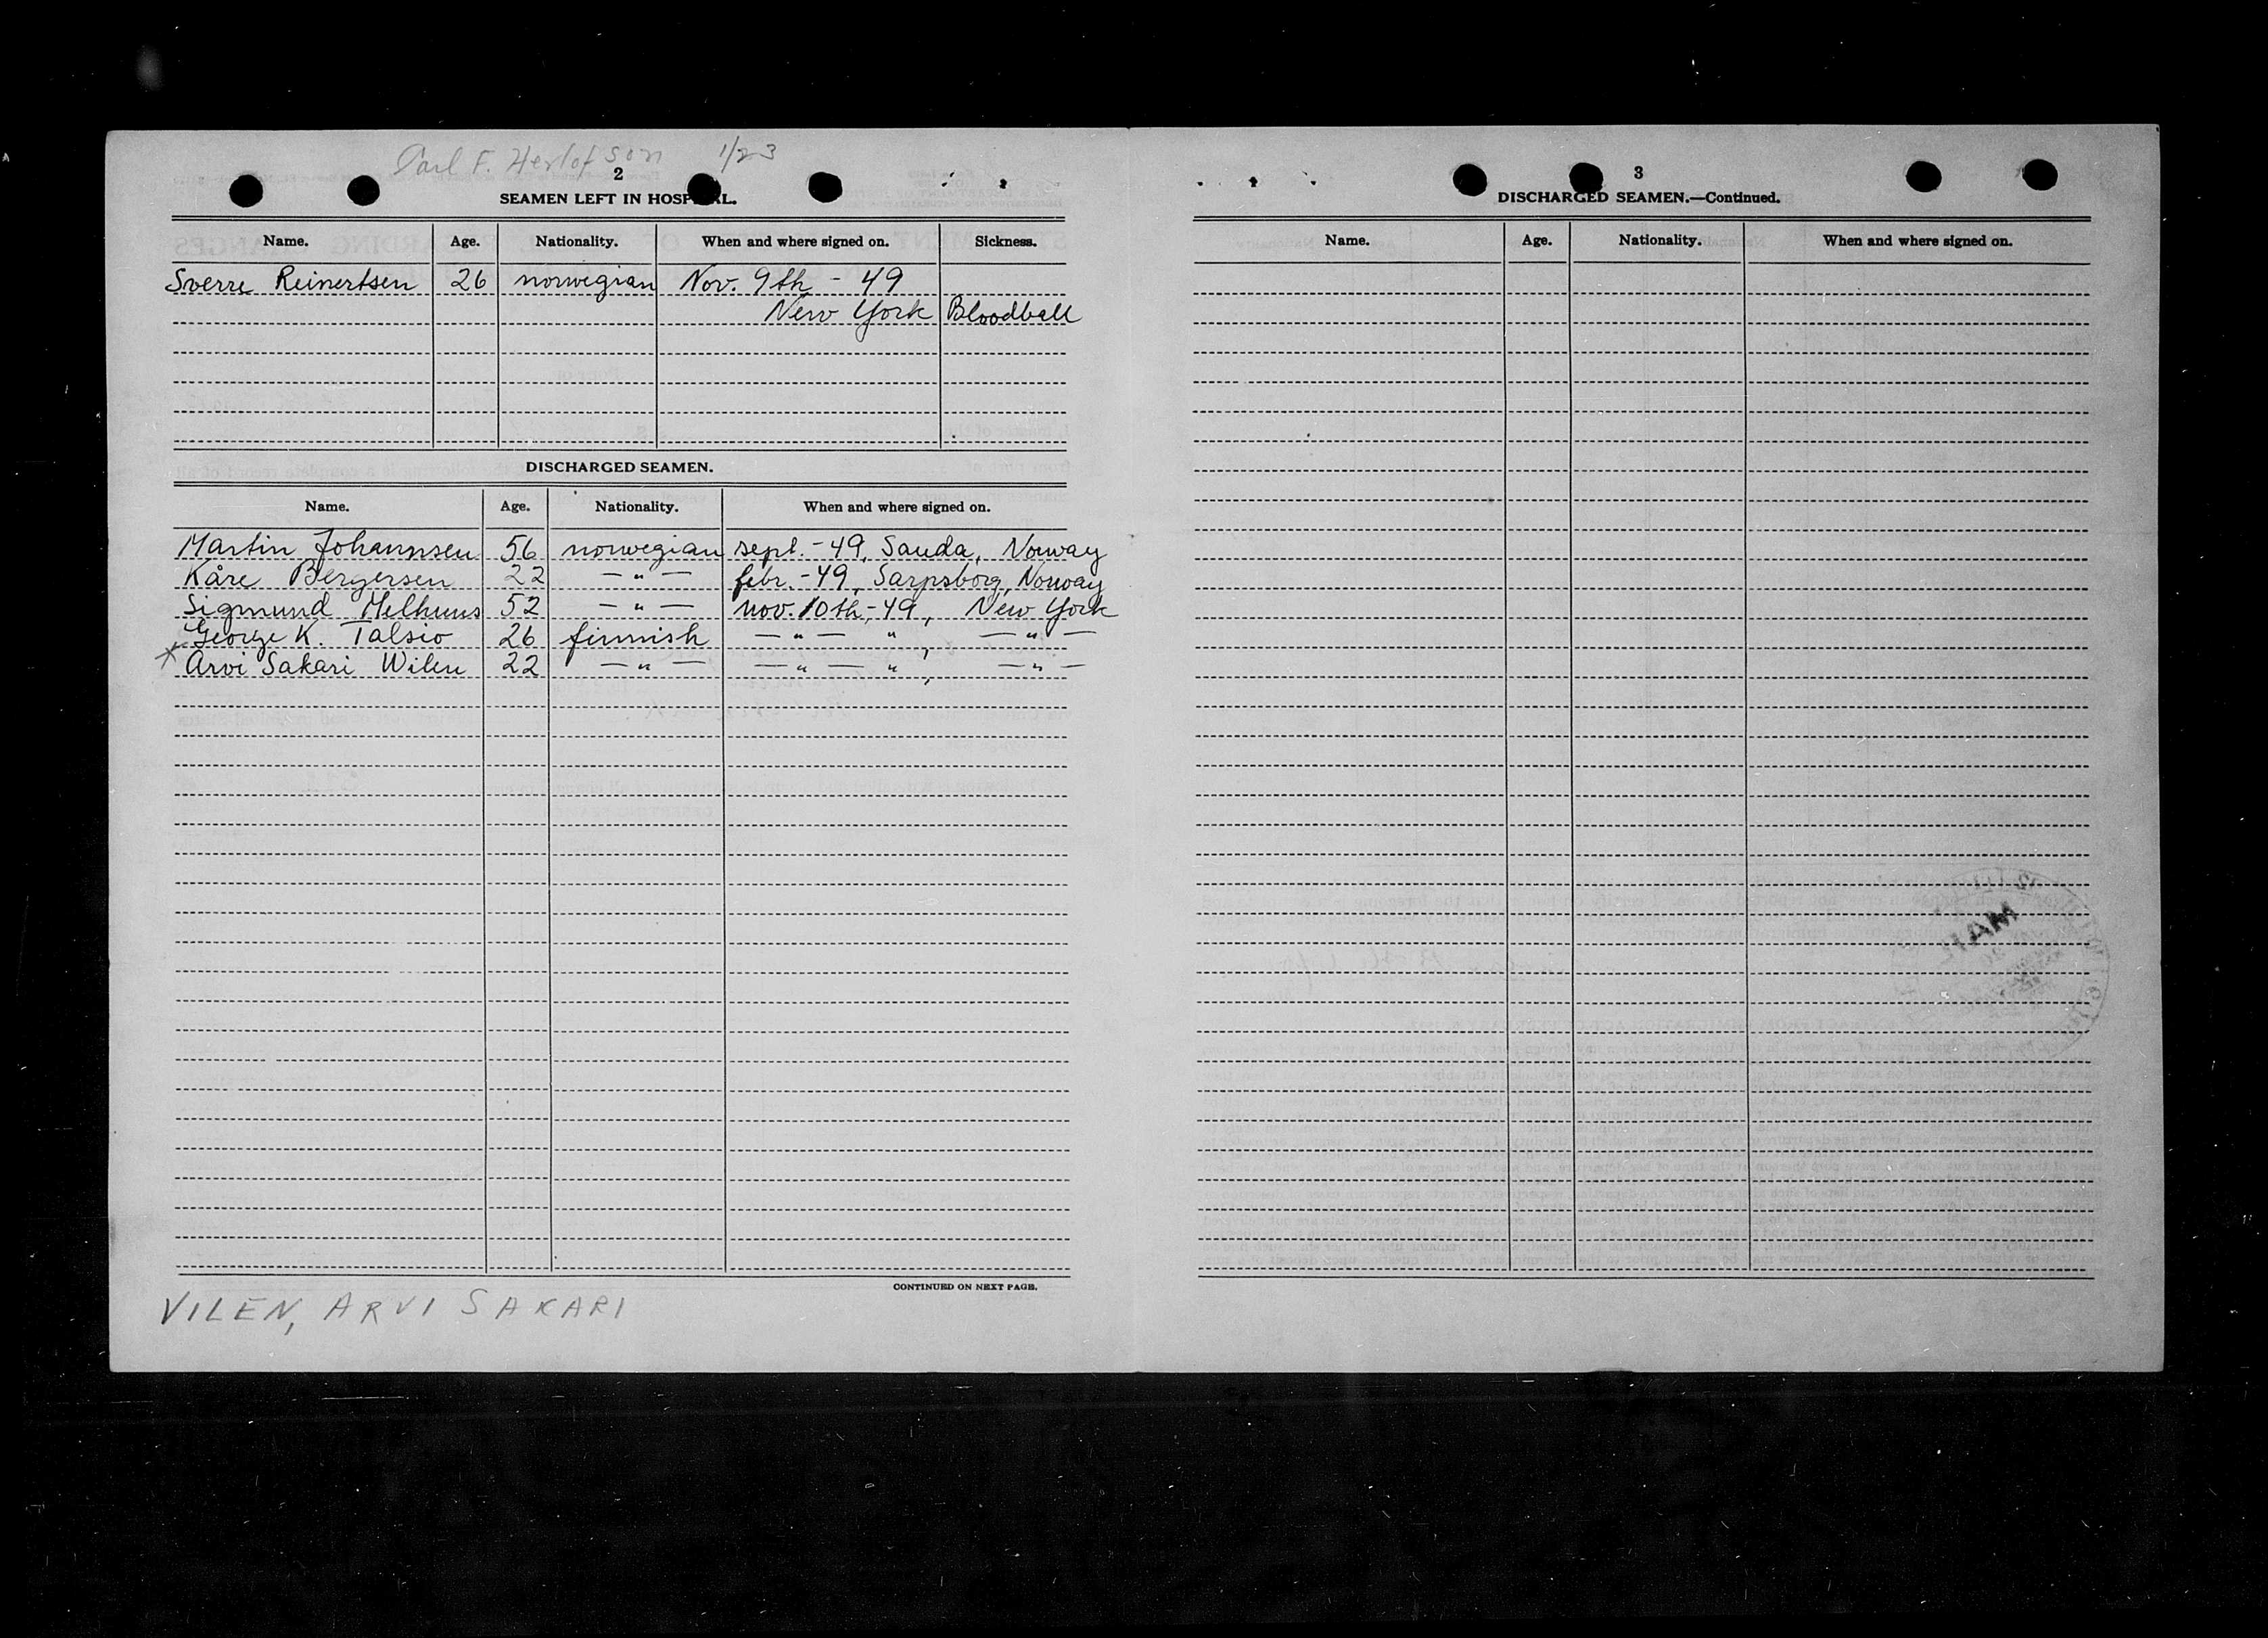 Carl F. Herlofson 1/23
2
SEAMEN LEFT IN HOSPITAL.
Name. Age. Nationality. When and where signed on. Sickness.
Sverre Reinertsen 26 norwegian Nov. 9th - 49
New York Bloodball
DISCHARGED SEAMEN.
Name. Age. Nationality. When and where signed on.
Martin Johannsen 56 norwegian sept. - 49, Sauda, Norway
Kåre Bergersen 22 — " — febr. - 49, Sarpsborg, Norway
Sigmund Melhuus 52 — " — nov. 10th, - 49, New York
George K. Talsio 26 finnish — " — " , — " —
* Arvi Sakari Wilen 22 — " — — " — " , — " —
CONTINUED ON NEXT PAGE.
VILEN, ARVI SAKARI
3
DISCHARGED SEAMEN.—Continued.
Name. Age. Nationality. When and where signed on.